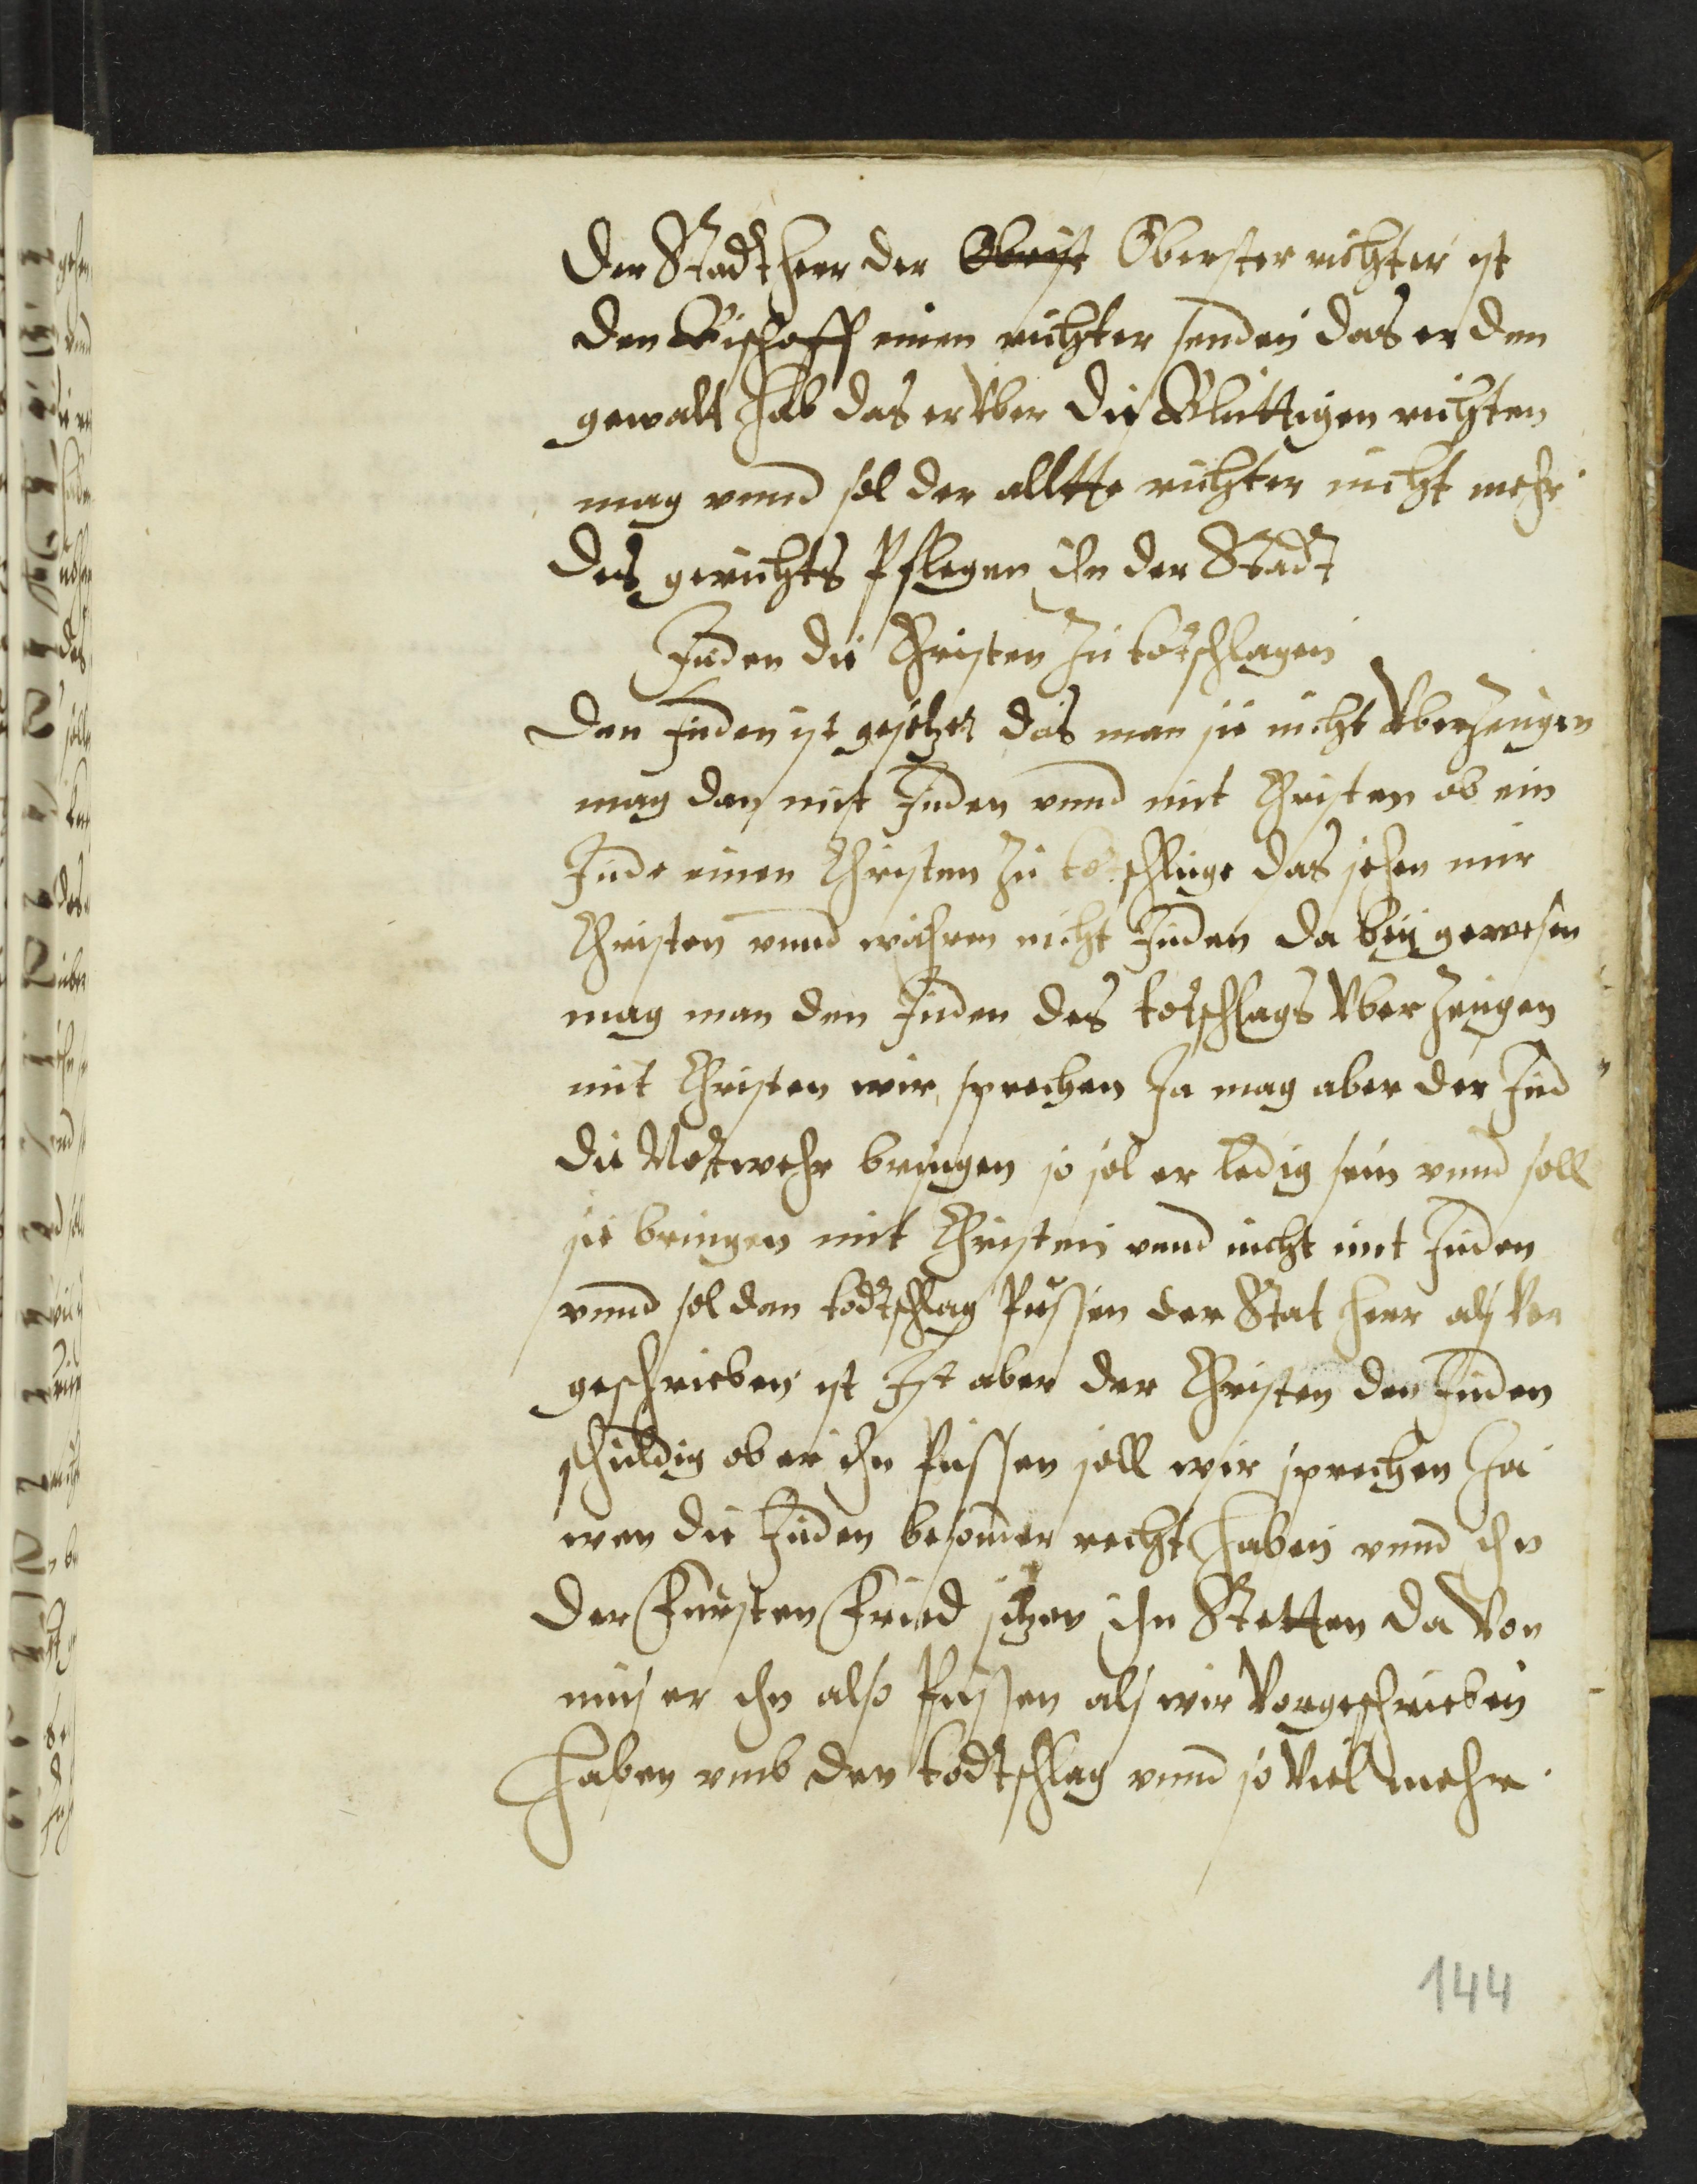 Der Stadt herr der Obrist Oberster richter ist
den Bischoff einen richter senden das er den
gewalt hab das er vber die Bluttigen richten
mag vnnd sol der alltte richter nicht mehr
des gerichts Pflegen jhn der Stadt
Juden die Christen zu totschlagen
Den Juden ist gesetzet das man sie nicht vberzeugen
mag dan mit Juden vnnd mit Christen ob ein
Jude einen Christen zu totschluge das sehen nur
Christen vnnd wehren nicht Juden da bey gewesen
mag man den Juden des totschlags vber zeugen
mit Christen wir sprechen Ja mag aber der Jud
die Notwehr bringen so sol er ledig sein vnnd soll
sie bringen mit Christen vnnd nicht mit Juden
vnnd sol den todtschlag Pussen der Stat herr als vor
geschrieben ist Ist aber der Christen den Juden
schuldig ob er jhn Pussen soll wir sprechen Ja
wen die Juden besonder recht haben vnnd jhn
der Fursten Fried sitzen jhn Stetten da von
mus er jhn also Pussen als wir vorgeschrieben
haben vmb den todtschlag vnnd so viel mehr
144